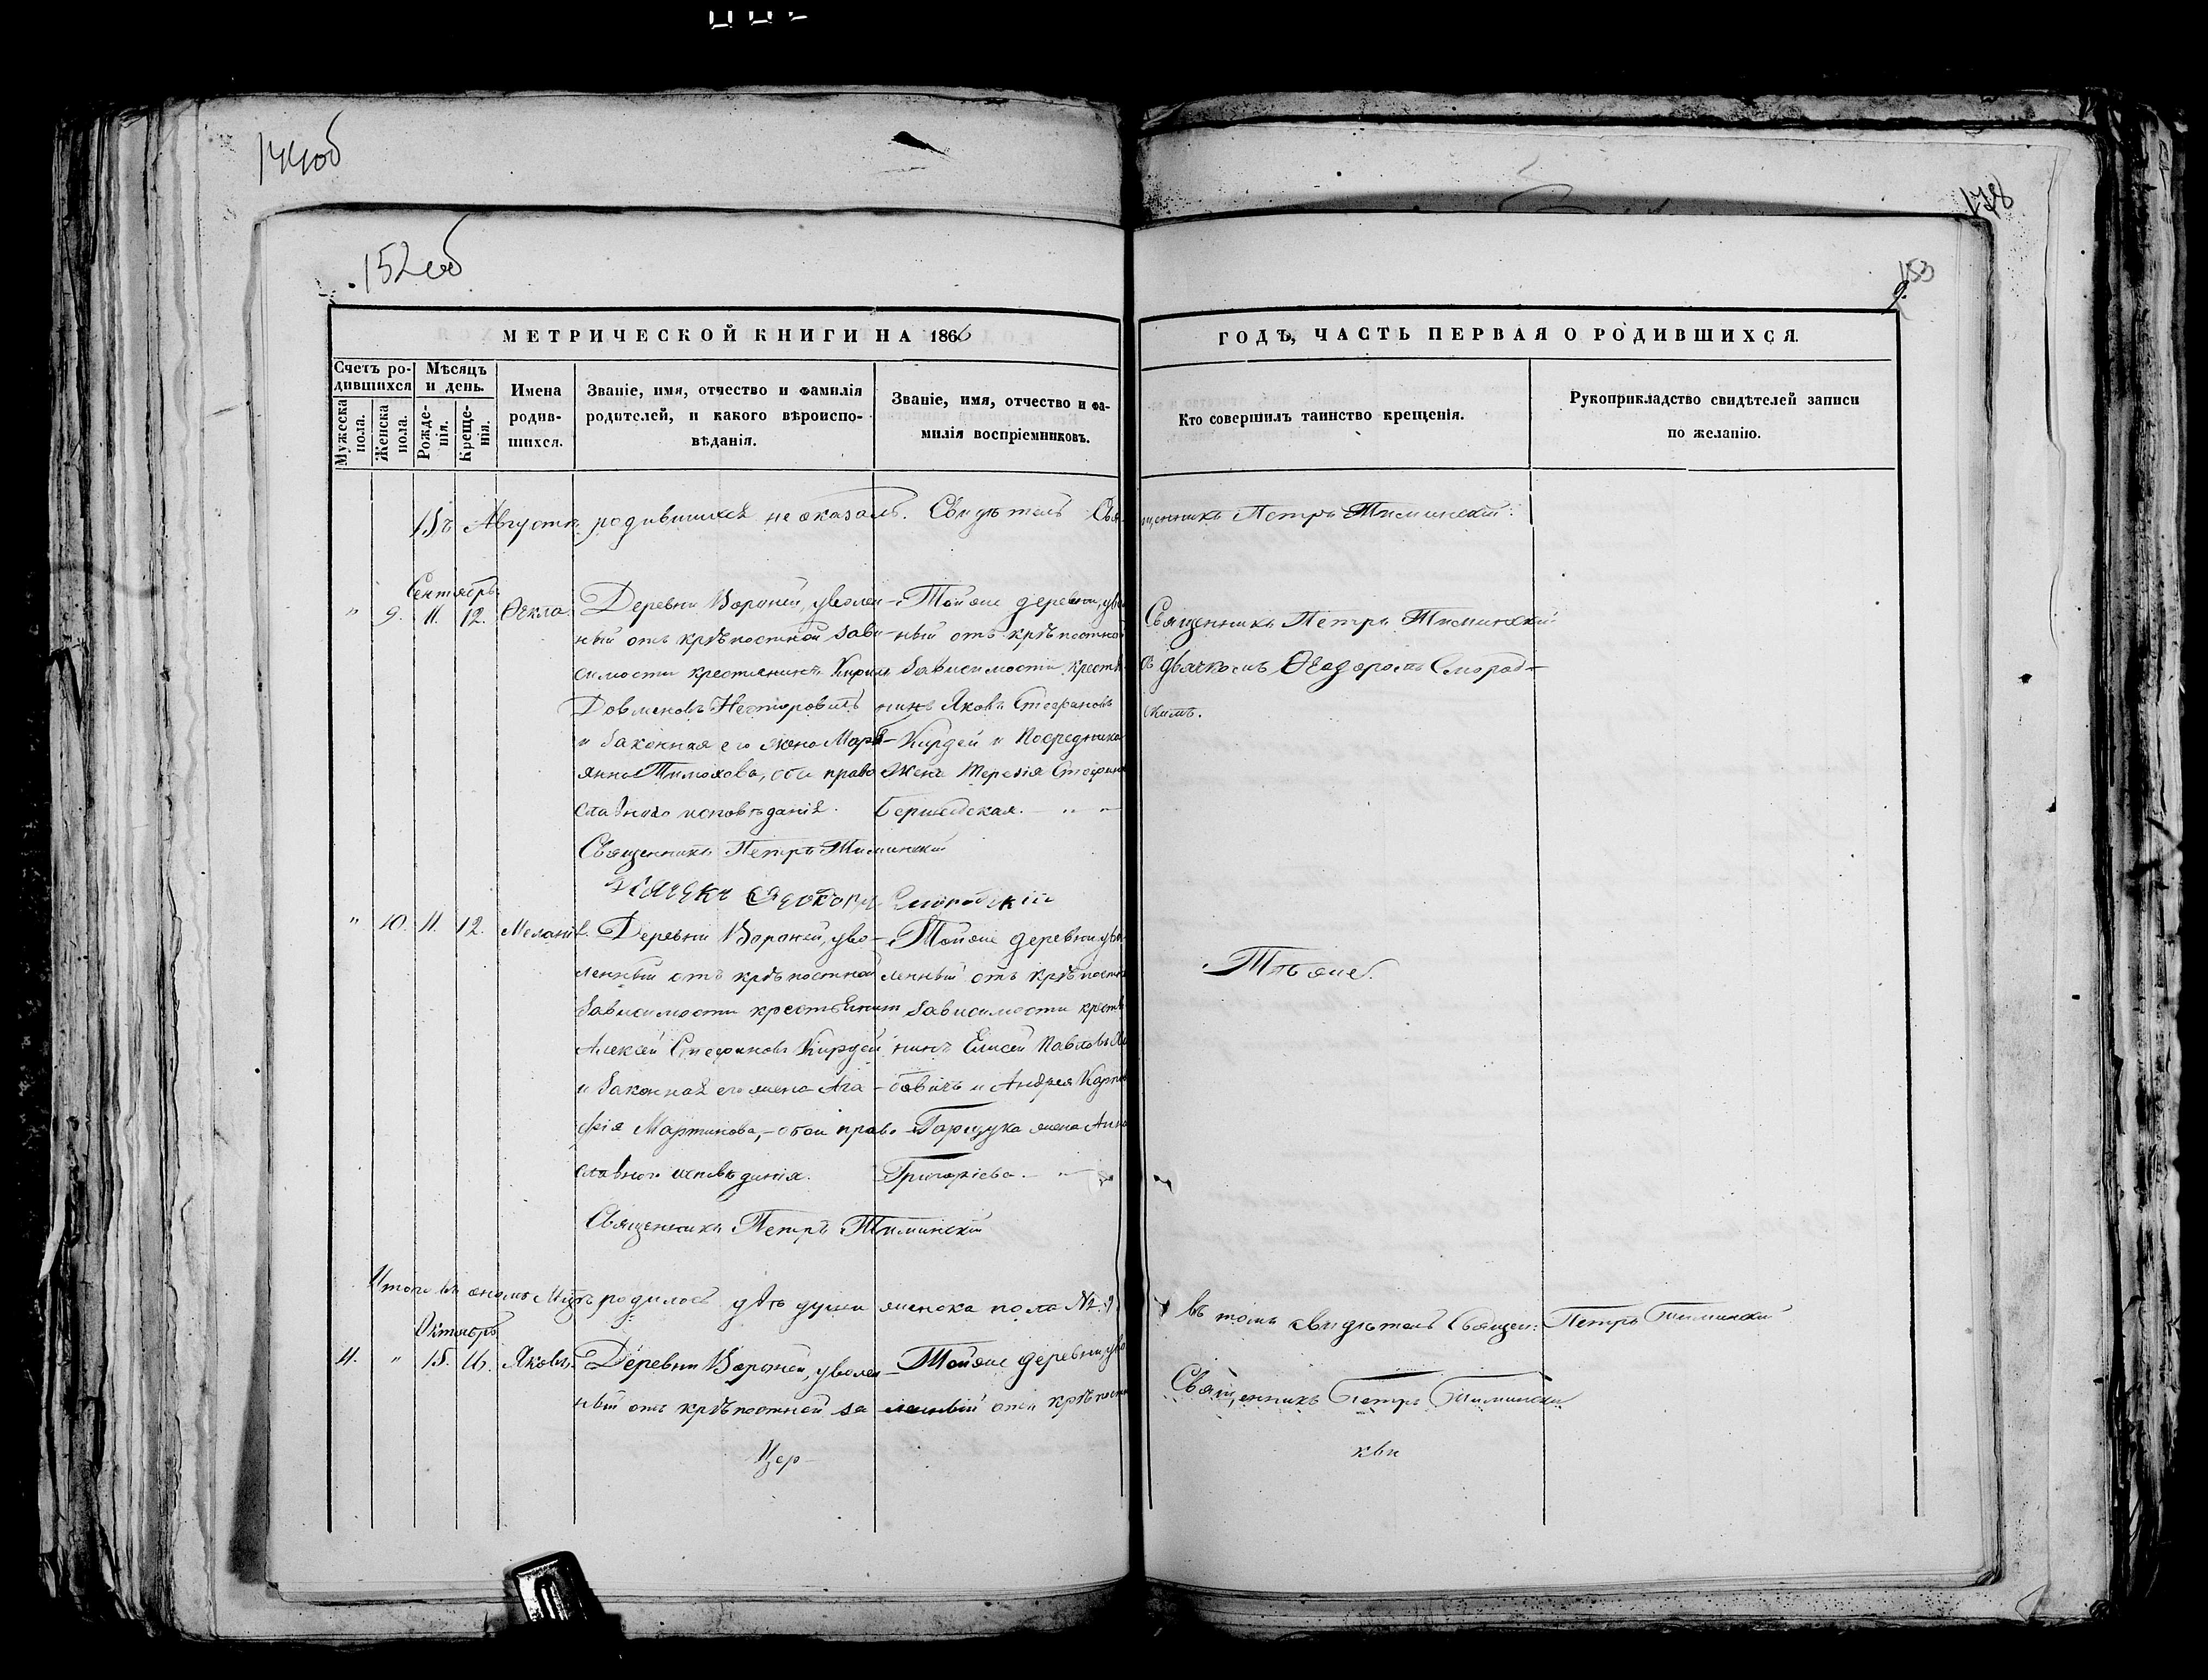 144об
178
152об
153
9.
МЕТРИЧЕСКОЙ КНИГИ НА 1866
ГОДЪ, ЧАСТЬ ПЕРВАЯ О РОДИВШИХСЯ.
Счетъ ро-
дившихся
Мѣсяцъ
и день.
Мужеска
пола.
Женска
пола.
Рожде-
нія.
Креще-
нія.
Имена
родив-
шихся.
Званіе, имя, отчество и фамилія
родителей, и какого вѣроиспо-
вѣданія.
Званіе, имя, отчество и фа-
милія воспріемниковъ.
Кто совершилъ таинство крещенія.
Рукоприкладство свидѣтелей записи
по желанію.
Въ Августѣ родившихся не оказалъ. Свидѣтель Свя-
щенникъ Петръ
Сентябрь
" 9. 11. 12. Ѳекла.
Деревни Вороней, уволен-
ный отъ крѣпостной зави-
симости крестьянинъ Кирилъ
Нестеровичъ
и законная его жена Марі-
анна Тимохова, оба право
славнаго исповѣданія.
Священникъ Петръ
Тойже деревни, уво
ный отъ крѣпостно
зависимости крестья
нинъ Яковъ Стефановъ
Кирдей и Посредника
жена Терезія Стефан
Священникъ Петръ
съ дьячкомъ Ѳеодоромъ
скимъ.
" 10. 11. 12. Меланія.
Деревни Вороней, уво-
ленный отъ крѣпостной
зависимости крестьянинъ
Алексей Стефановъ Кирдей
и законная его жена Ага-
фія Мартинова, обои право
славнаго исповѣданія.
Священникъ Петръ
Тойже деревни, уво
ленный отъ крѣпостн
зависимости крестья
нинъ Елисей Павловъ
и Андрея Карпов
жена Анна
Григорьева.
Тѣже.
Итого въ ономъ родилось двѣ души женска пола № 2
въ томъ свидѣтель Священ: Петръ
Октябрь
11. " 15. 16. Яковъ.
Деревни Вороней, уволен-
ный отъ крѣпостной за
Тойже деревни, уво
ленный отъ крѣпостн
Священникъ Петръ
Цер-
кви